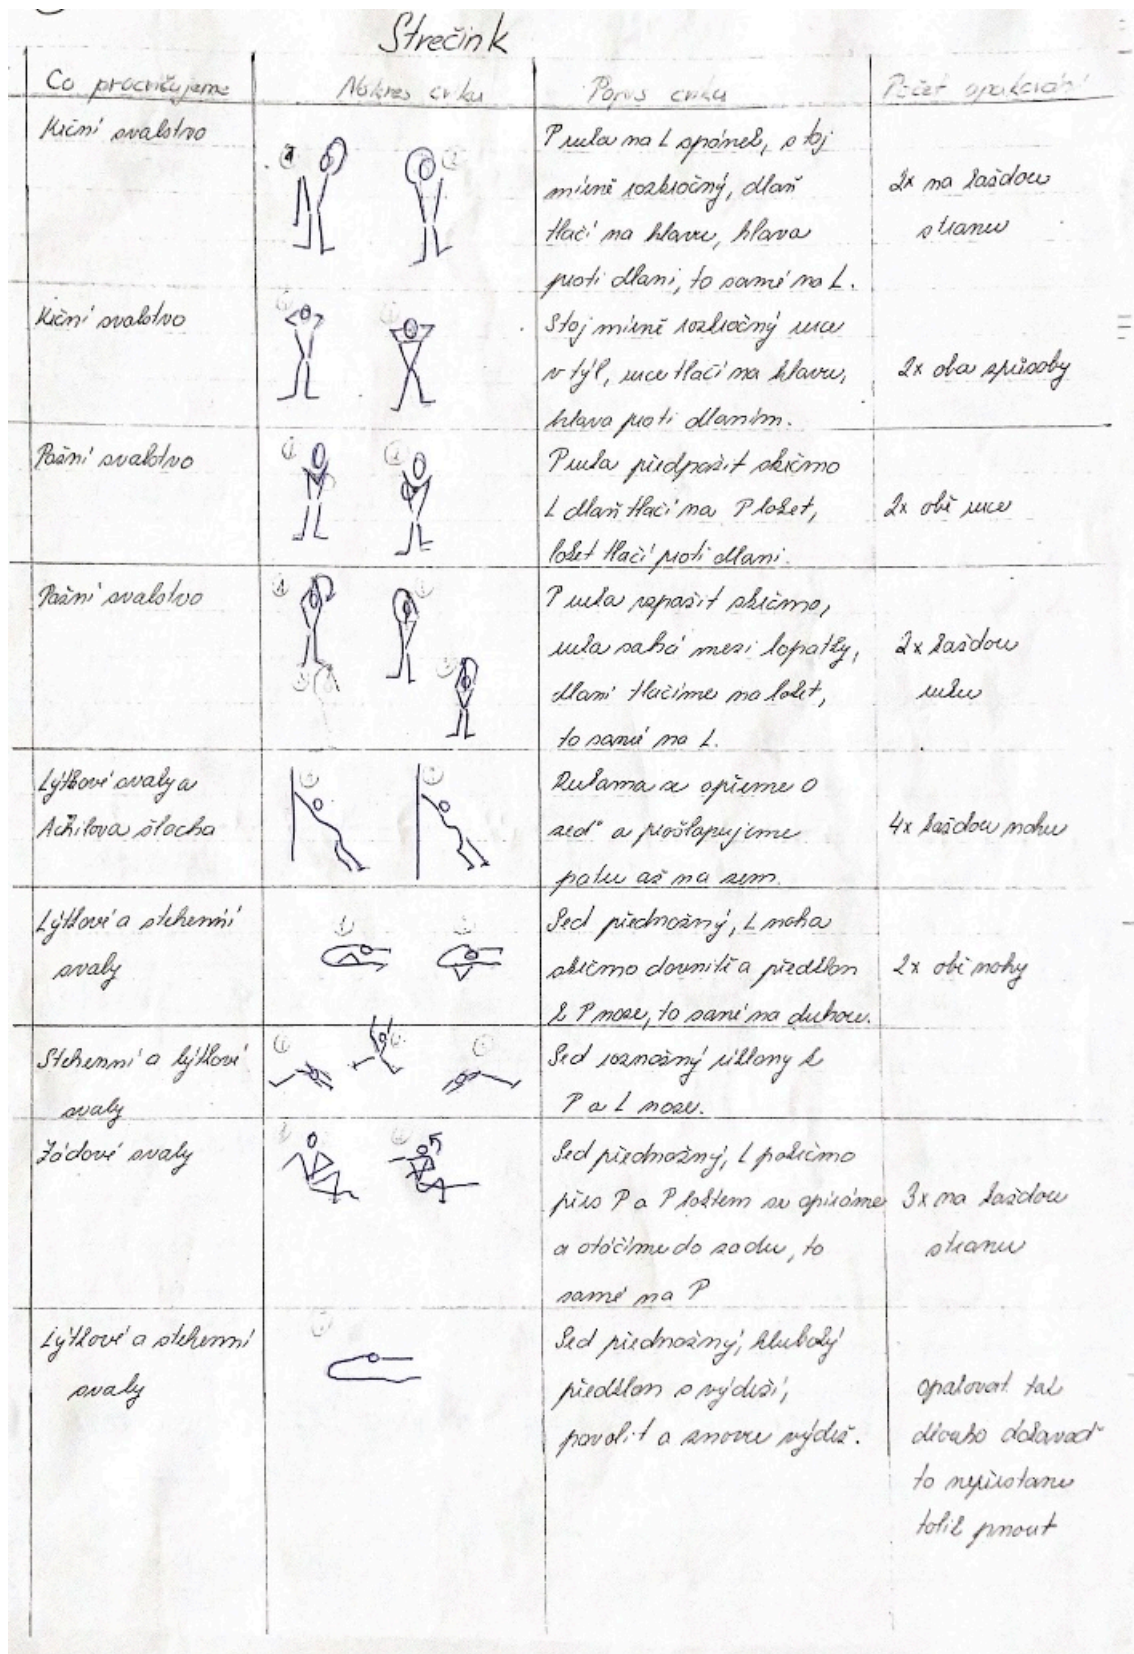 Strečink
Co procvičujeme Nákres cviku Popis cviku Počet opakování
Krční svalstvo
P ruka na L spánek, stoj
mírně rozkročný, dlaň
tlačí na hlavu, hlava
proti dlani, to samé na L.
2x na každou
stranu
Krční svalstvo
Stoj mírně rozkročný ruce
v týl, ruce tlačí na hlavu,
hlava proti dlaním.
2x oba způsoby
Pažní svalstvo
P ruka předpažit skrčmo
L dlaň tlačí na P loket,
loket tlačí proti dlani.
2x obě ruce
Pažní svalstvo
P ruka vzpažit skrčmo,
ruka sahá mezi lopatky,
dlaní tlačíme na loket,
to samé na L.
2x každou
ruku
Lýtkové svaly a
Achilova šlacha
Rukama se opřeme o
zeď a prošlapujeme
patu až na zem.
4x každou nohu
Lýtkové a stehenní
svaly
Sed přednožný, L noha
skrčmo dovnitř a předklon
k P noze, to samé na druhou.
2x obě nohy
Stehenní a lýtkové
svaly
Sed roznožný úklony k
P a L noze.
Zádové svaly
Sed přednožný, L pokrčmo
přes P a P loktem se opíráme
a otočíme do zadu, to
samé na P
3x na každou
stranu
Lýtkové a stehenní
svaly
Sed přednožný, hluboký
předklon s výdeší,
povolit a znovu výdeš.
opakovat tak
dlouho dokavaď
to nepřestane
tolik pnout